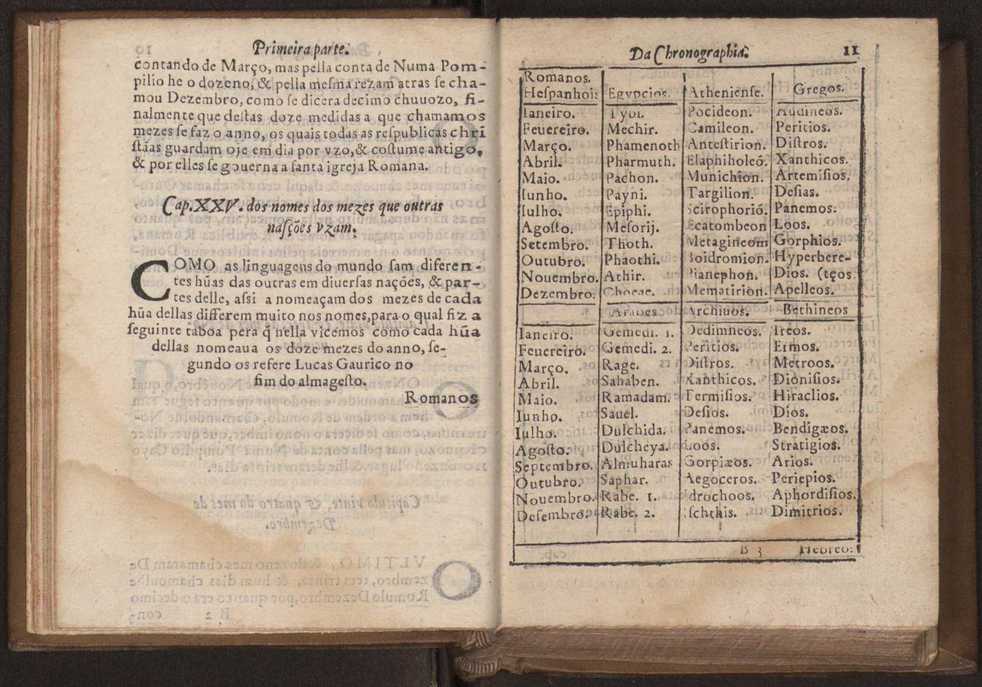 Primeira parte.
contando de Março, mas pella conta de Numa Pom-
pilio he o dozeno, & pella mesma rezam atras se cha-
mou Dezembro, como se dicera decimo chuuozo, fi-
nalmente que destas doze medidas a que chamamos
mezes se faz o anno, os quais todas as respublicas chri
stãas guardam oje em dia por vzo, & costume antigo,
& por elles se gouerna a santa igreja Romana.
Cap. XXV. dos nomes dos mezes que outras
nasções vzam.
COMO as linguagens do mundo sam diferen-
tes hũas das outras em diuersas nações, & par-
tes delle, assi a nomeaçam dos mezes de cada
hũa dellas differem muito nos nomes, para o qual fiz a
seguinte taboa pera q̃ nella vicemos como cada hũa
dellas nomeaua os doze mezes do anno, se-
gundo os refere Lucas Gaurico no
fim do almagesto.
Romanos
Da Chronographia. 11
Romanos.
Hespanhois Egypcios. Atheniense. Gregos.
Ianeiro. Tybi. Pocideon. Audineos.
Feuereiro. Mechir. Camileon. Peritios.
Março. Phamenoth Antestirion. Distros.
Abril. Pharmuth. Elaphiholeó. Xanthicos.
Maio. Pachon. Munichion. Artemisios.
Iunho. Payni. Targilion. Desias.
Iulho. Epiphi. Scirophorió. Panemos.
Agosto. Mesorij. Ecatombeon Loos.
Setembro. Thoth. Metagineom Gorphios.
Outubro. Phaothi. Boidromion. Hyperbere-
Nouembro. Athir. Pianephon. Dios. (teos
Dezembro. Choeac. Mematirion. Apelleos.
Arabes Archiuos. Bethineos
Ianeiro. Gemedi. 1. Dedimneos. Ireos.
Feucreiro. Gemedi. 2. Peritios. Ermos.
Março. Rage. Distros. Metroos.
Abril. Sahaben. Xanthicos. Dionisios.
Maio. Ramadam. Termisios. Hiraclios.
Iunho. Sauel. Desios. Dios.
Iulho. Dulchida. Panemos. Bendigæos.
Agosto. Dulcheya. Loos. Stratigios.
Septembro. Almuharas Gorpiæos. Arios.
Outubro. Saphar. Aegoceros. Periepios.
Nouembro. Rabe. 1. Idrochoos. Aphordisios.
Desembro. Rabe. 2. Ischthis. Dimitrios.
B 3 Hebreo.